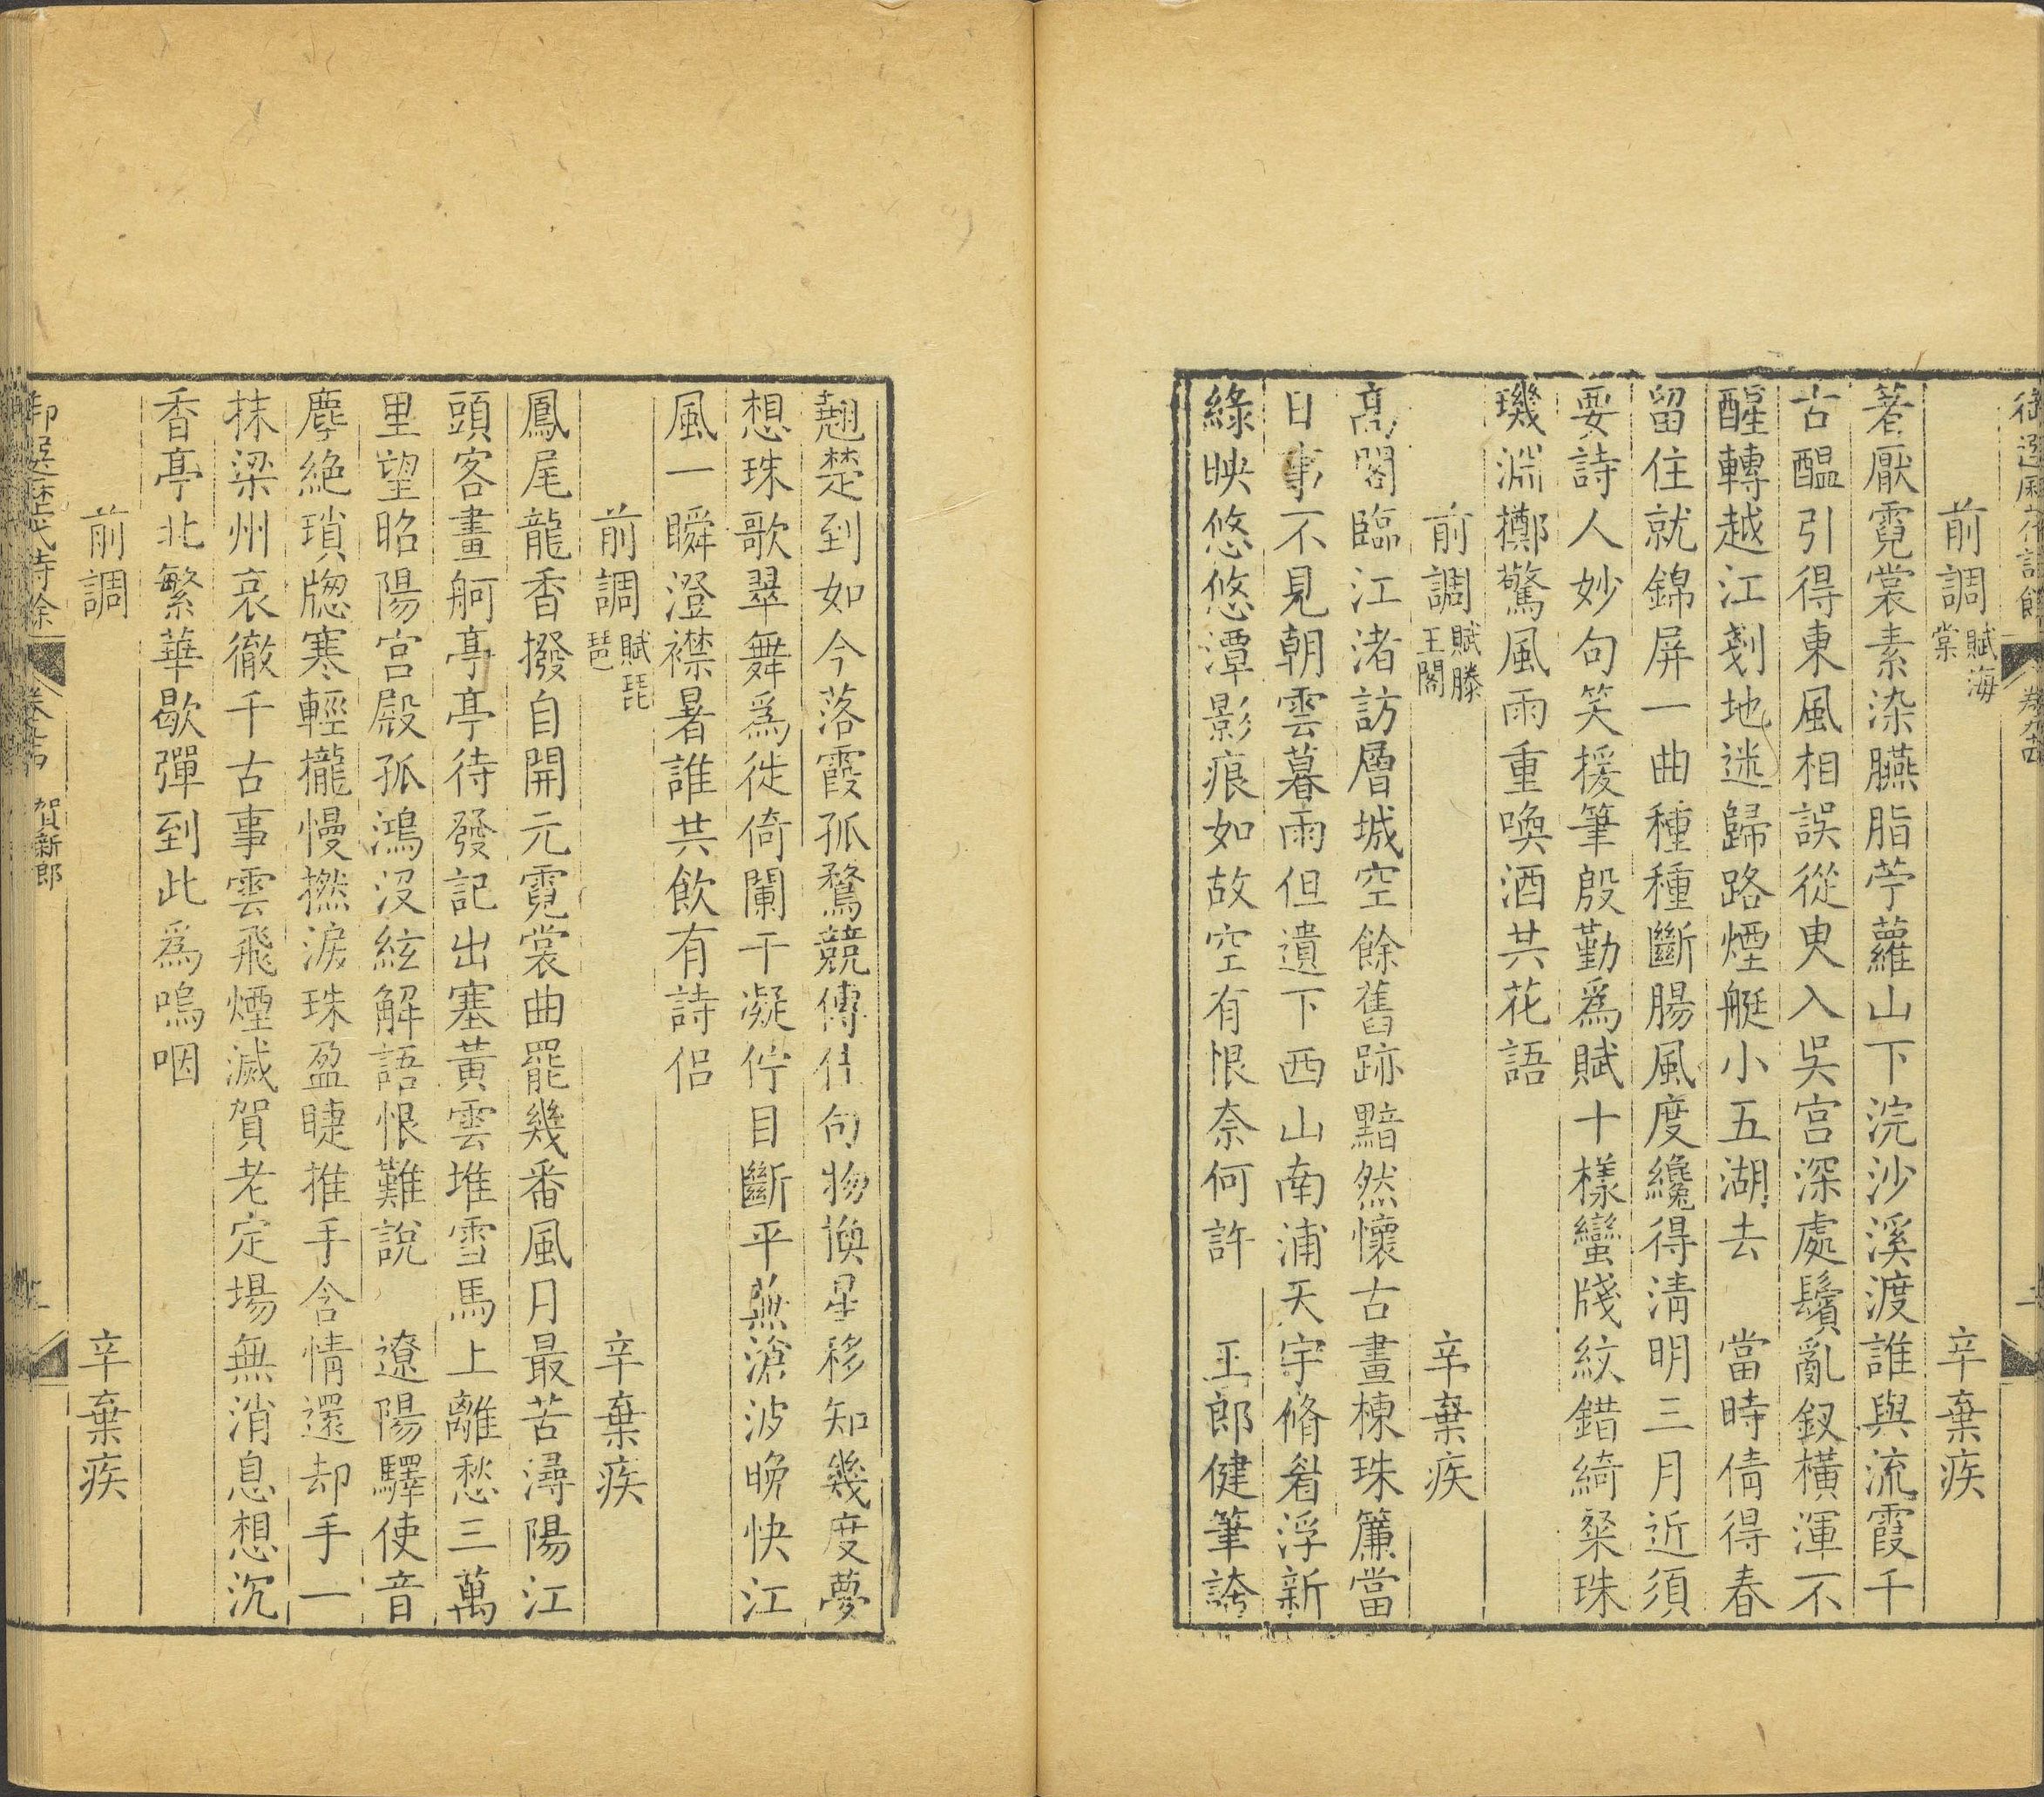 前調賦海棠　辛棄疾
著厭霓裳素染臙脂苧蘿山下浣沙溪渡誰與流霞千
古醖引得東風相誤從臾入吳宮深處鬢亂釵橫渾不
醒轉越江剗地迷歸路煙艇小五湖去　當時倩得春
留住就錦屏一曲種種斷腸風度纔得淸明三月近須
要詩人妙句笑援筆殷勤爲賦十樣蠻牋紋錯綺粲珠
璣淵擲驚風雨重喚酒共花語
前調賦滕王閣　辛棄疾
高閣臨江渚訪層城空餘舊跡黯然懷古畫棟珠簾當
日事不見朝雲暮雨但遺下西山南浦天宇脩眉浮新
綠映悠悠潭影痕如故空有恨奈何許　王郎健筆誇
翹楚到如今落霞孤鶩競傳佳句物換星移知幾度夢
想珠歌翠舞爲徙倚闌干凝佇目斷平蕪滄波晚快江
風一瞬澄襟暑誰共飲有詩侶
前調賦琵琶　辛棄疾
鳳尾龍香撥自開元霓裳曲罷幾番風月最苦潯陽江
頭客畫舸亭亭待發記出塞黃雲堆雪馬上離愁三萬
里望昭陽宮殿孤鴻沒絃解語恨難說　遼陽驛使音
塵絕瑣牕寒輕攏慢撚淚珠盈睫推手含情還却手一
抹梁州哀徹千古事雲飛煙滅賀老定場無消息想沉
香亭北繁華歇彈到此爲嗚咽
前調　辛棄疾
賀新郎